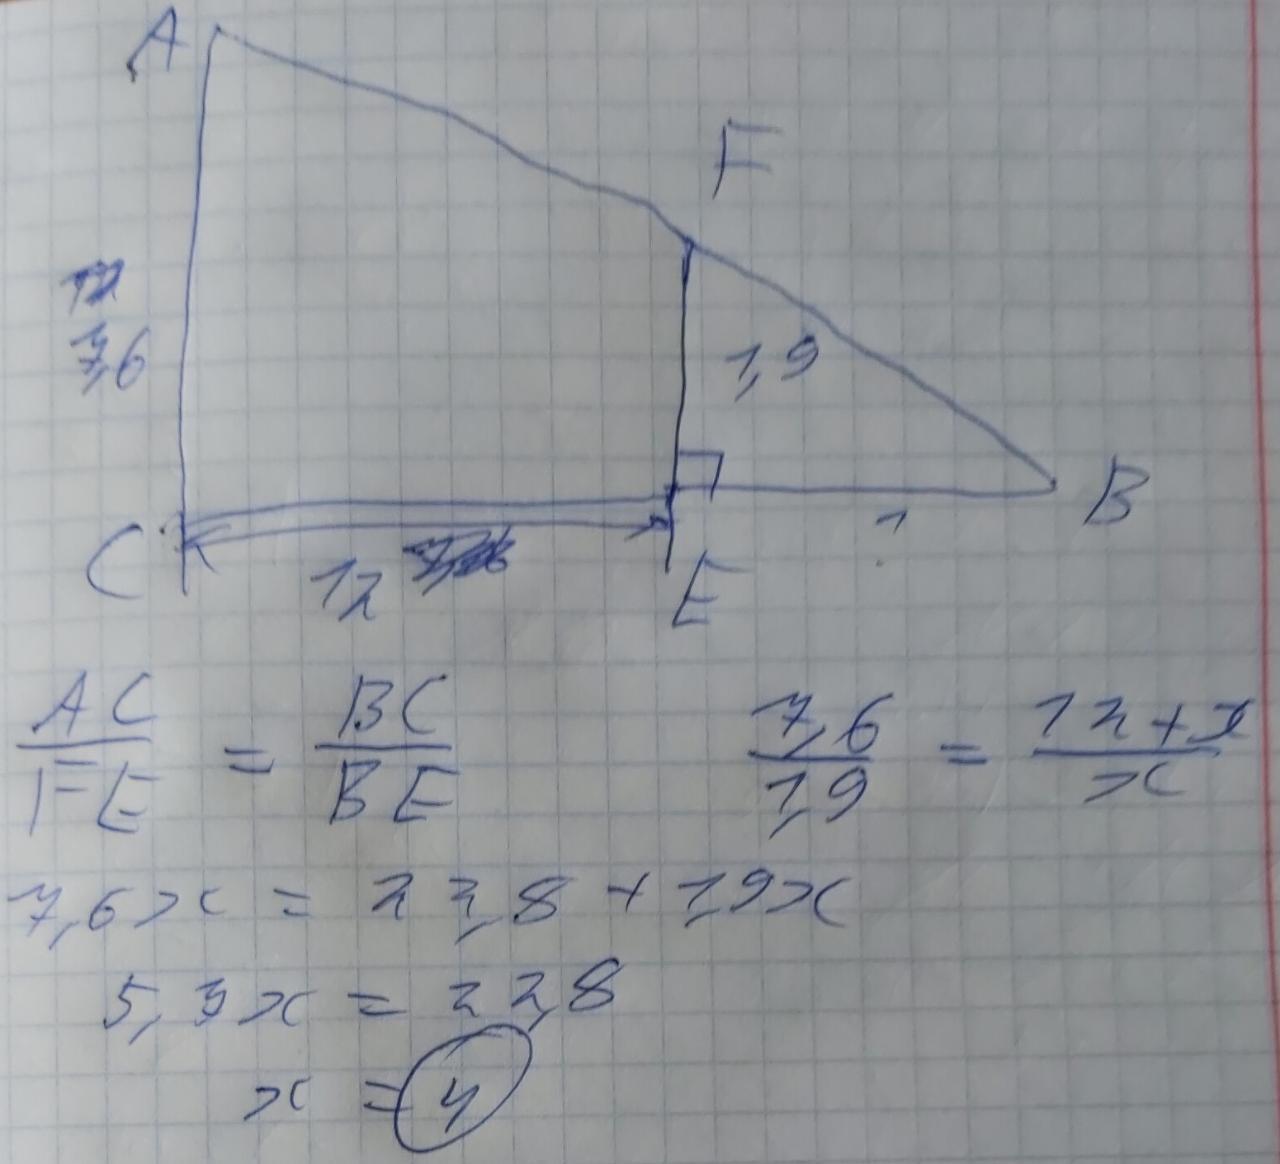 A
F
7,6
1,9
B
C
12
?
E
AC/FE = BC/BE
7,6/1,9 = 12+x/x
7,6x = 22,8 + 1,9x
5,7x = 22,8
x = 4